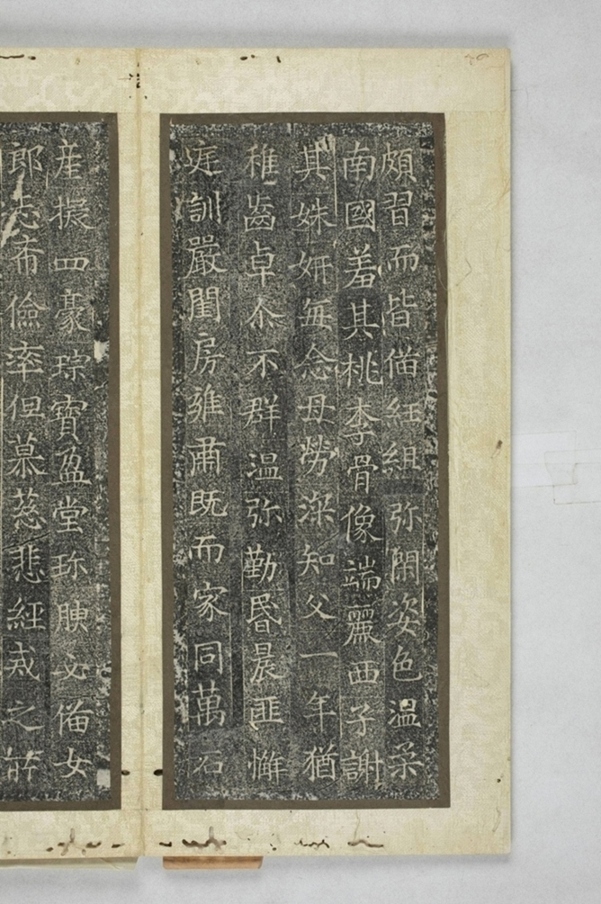 頗習而皆俻紝組弥閑姿色温柔
南國羞其桃李骨像端麗西子謝
其姝妍每念母勞深知父一年猶
稚齒卓尒不群温弥勤昬晨匪懈
㢠訓嚴閨房雍肅既而家同萬石
産擬四豪琮寳盈堂珎腴必俻女
郎志希儉率但慕慈悲經戒之